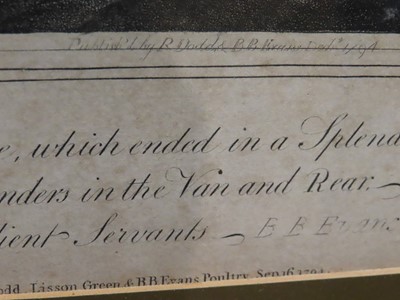 Publish'd by R Dodd & B B Evans
e, which ended in a Splend
nders in the Van and Rear.—
dient Servants — B B Evans
odd, Lisson Green, & B B Evans Poultry, Sep 16 1794